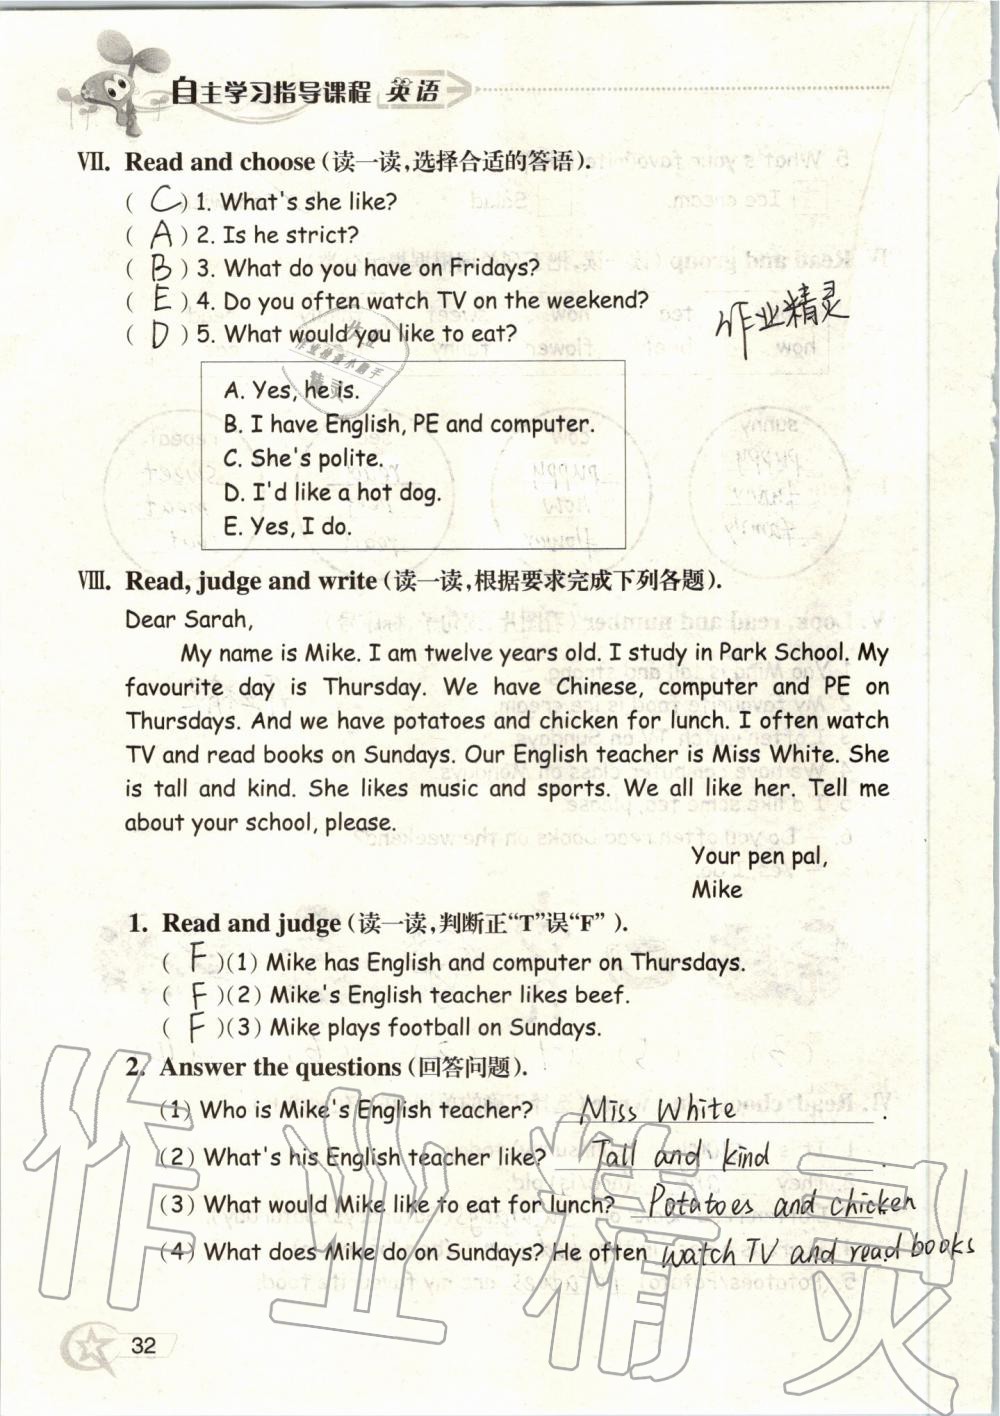 自主学习指导课程 英语
Ⅶ. Read and choose (读一读,选择合适的答语).
( C ) 1. What's she like?
( A ) 2. Is he strict?
( B ) 3. What do you have on Fridays?
( E ) 4. Do you often watch TV on the weekend?
( D ) 5. What would you like to eat?
作业精灵
A. Yes, he is.
B. I have English, PE and computer.
C. She's polite.
D. I'd like a hot dog.
E. Yes, I do.
Ⅷ. Read, judge and write (读一读,根据要求完成下列各题).
Dear Sarah,
My name is Mike. I am twelve years old. I study in Park School. My
favourite day is Thursday. We have Chinese, computer and PE on
Thursdays. And we have potatoes and chicken for lunch. I often watch
TV and read books on Sundays. Our English teacher is Miss White. She
is tall and kind. She likes music and sports. We all like her. Tell me
about your school, please.
Your pen pal,
Mike
1. Read and judge (读一读,判断正“T”误“F” ).
( F )(1) Mike has English and computer on Thursdays.
( F )(2) Mike's English teacher likes beef.
( F )(3) Mike plays football on Sundays.
2. Answer the questions (回答问题).
(1) Who is Mike's English teacher? Miss White .
(2) What's his English teacher like? Tall and kind .
(3) What would Mike like to eat for lunch? Potatoes and chicken
(4) What does Mike do on Sundays? He often watch TV and read books
作业精灵
32